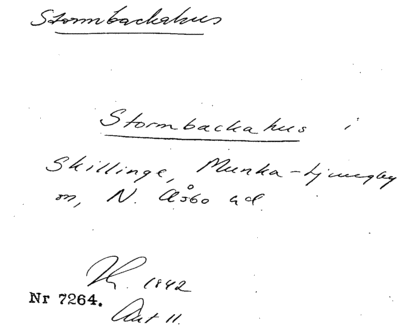 Stormbackahus
Stormbackahus i
Skillinge, Munka-Ljungby
sn, N. Åsbo hd.
1942
Nr 7264.
Ant 11.